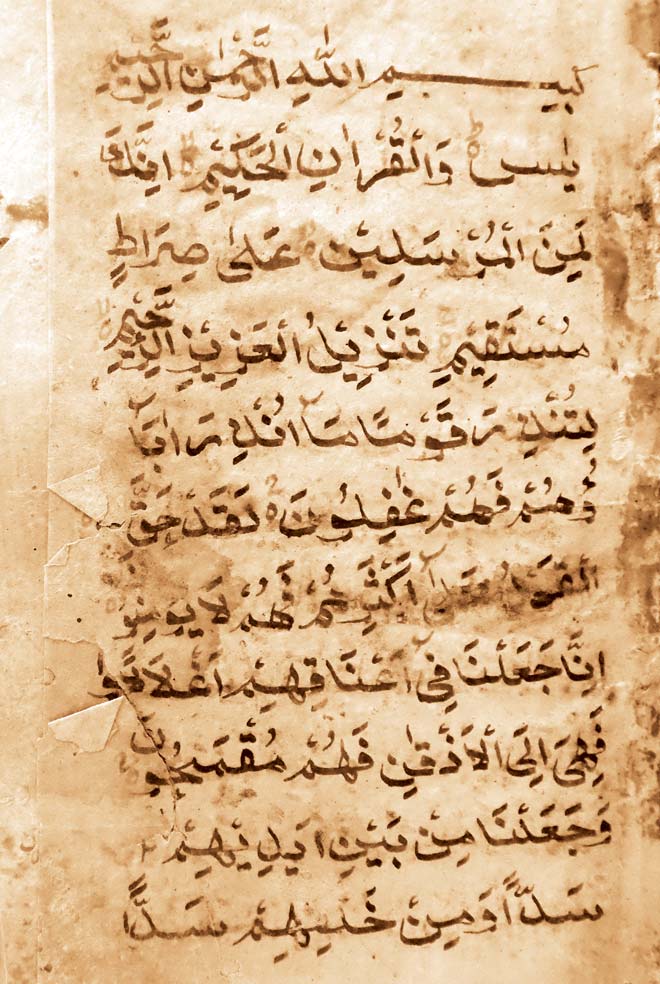 بسم الله الرحمن الرحيم
يس وَالْقُرْاٰنِ الْحَكِيْمِ اِنَّكَ
لَمِنَ الْمُرْسَلِيْنَ عَلٰى صِرَاطٍ
مُسْتَقِيْمٍ تَنْزِيْلَ الْعَزِيْزِ الرَّحِيْمِ
لِتُنْذِرَ قَوْمًا مَآ اُنْذِرَ اٰبَآ
ؤُهُمْ فَهُمْ غٰفِلُوْنَ لَقَدْ حَقَّ
الْقَوْلُ عَلٰٓى اَكْثَرِهِمْ فَهُمْ لَا يُومِنُو
اِنَّا جَعَلْنَا فِىْٓ اَعْنَاقِهِمْ اَغْلَا
فَهِىَ اِلَى الْاَذْقَانِ فَهُمْ مُقْمَحُونَ
وَجَعَلْنَا مِنْ بَيْنِ اَيْدِيْهِمْ
سَدًّا وَمِنْ خَلْفِهِمْ سَدًّا